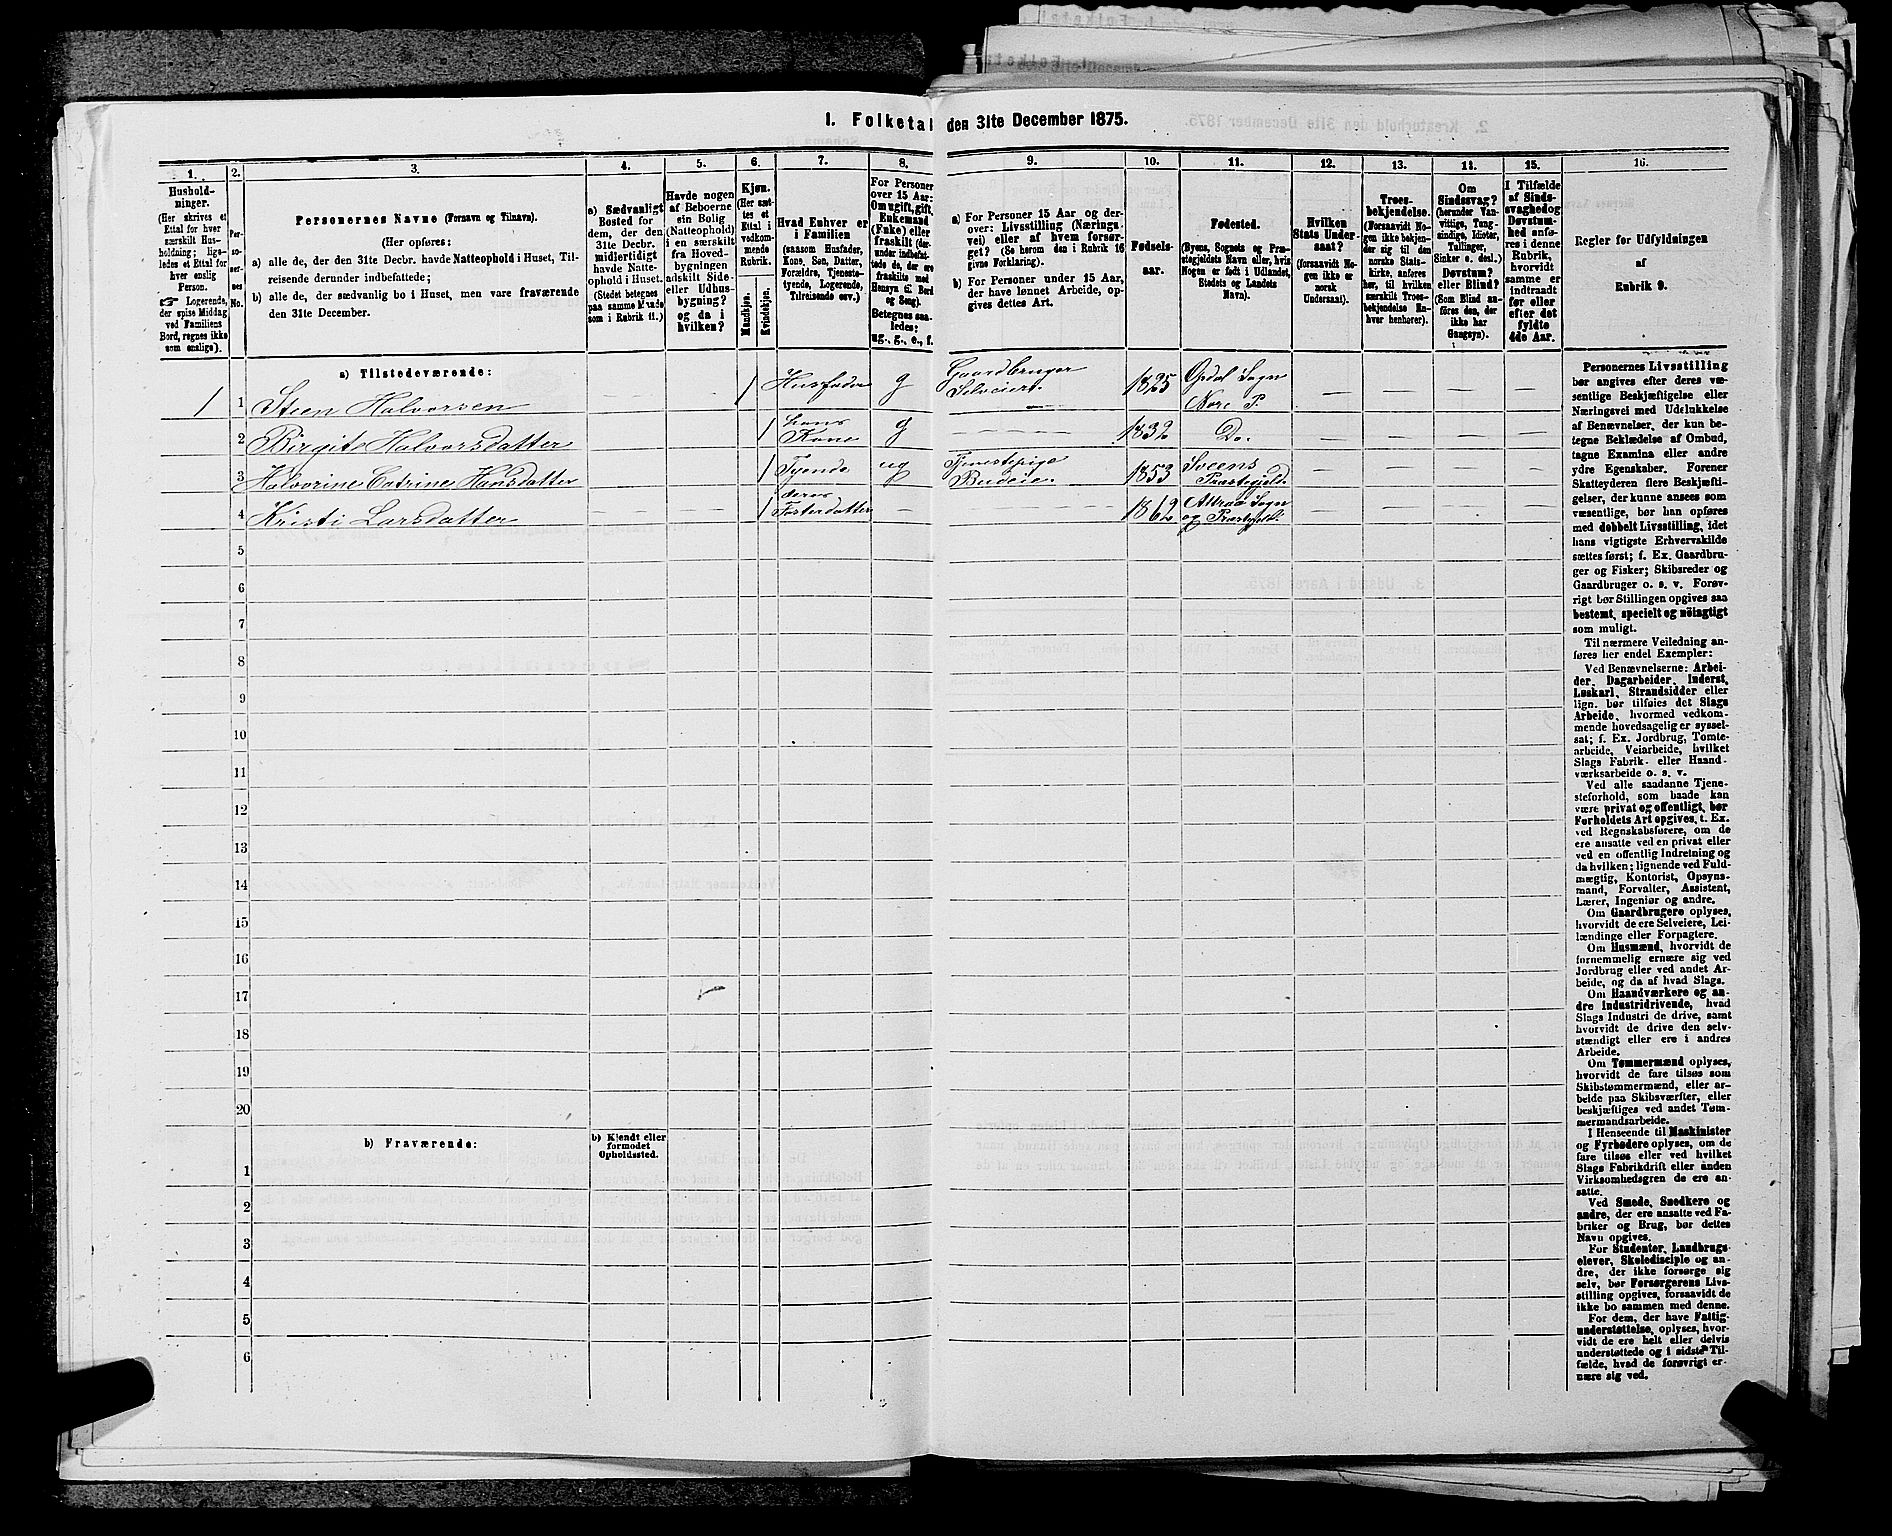 1. Folketal den 31te December 1875.
1.
2.
3.
4.
5.
6.
7.
8.
9.
10.
11.
12.
13.
14.
15.
16.
Hushold-
ninger.
(Her skrives et
Ettal for hver
særskilt Hus-
holdning; lige-
ledes et Ettal for
hver enslig
Person.
☞ Logerende,
der spise Middag
ved Familiens
Bord, regnes ikke
som enslige).
Per-
so-
ner-
nes
No.
Personernes Navne (Fornavn og Tilnavn).
(Her opføres:
a) alle de, der den 31te Decbr. havde Natteophold i Huset, Til-
reisende derunder indbefattede;
b) alle de, der sædvanlig bo i Huset, men vare fraværende
den 31te December.
a) Sædvanligt
Bosted for
dem, der den
31te Decbr.
midlertidigt
havde Natte-
ophold i Huset.
(Stedet betegnes
paa samme Maade
som i Rubrik 11.)
Havde nogen
af Beboerne
sin Bolig
(Natteophold)
i en særskilt
fra Hoved-
bygningen
adskilt Side-
eller Udhus-
bygning?
og da i
hvilken?
Kjøn.
(Her sæt-
tes et
Ettal i
vedkom-
mende
Rubrik.
Mandkjøn.
Kvindekjøn.
Hvad Enhver er
i Familien
(saasom Husfader,
Kone, Søn, Datter,
Forældre, Tjeneste-
tyende, Logerende,
Tilreisende osv.)
For Personer
over 15 Aar:
Om ugift, gift,
Enkemand
(Enke) eller
fraskilt (der-
under indbefat-
tede de, der ere
fraskilte med
Hensyn til Bord
og Seng).
Betegnes saa-
ledes:
ug., g., e., f.
a) For Personer 15 Aar og der-
over: Livsstilling (Nærings-
vei) eller af hvem forsør-
get? (Se herom den i Rubrik 16
givne Forklaring).
b) For Personer under 15 Aar,
der have lønnet Arbeide, op-
gives dettes Art.
Fødsels-
aar.
Fødested.
(Byens, Sognets og Præ-
stegjeldets Navn eller, hvis
Nogen er født i Udlandet,
Stedets og Landets
Navn).
Hvilken
Stats Under-
saat?
(forsaavidt No-
gen ikke er
norsk
Undersaat).
Troes-
bekjendelse.
(Forsaavidt No-
gen ikke bekjen-
der sig til den
norske Stats-
kirke, anføres
her, til hvilken
særskilt Troes-
bekjendelse En-
hver henhører).
Om
Sindssvag?
(herunder Van-
vittige, Tung-
sindige, Idioter,
Tullinger,
Sinker o. desl.)
Døvstum?
eller Blind?
(Som Blind an-
føres den, der
ikke har
Gangsyn).
I Tilfælde
af Sinds-
svaghed og
Døvstum-
hed anfø-
res i denne
Rubrik,
hvorvidt
samme er
indtraadt
før eller
efter det
fyldte
4de Aar.
Regler for Udfyldningen
af
Rubrik 9.
a) Tilstedeværende:
1 1 Steen Halvorsen 1 Husfader g Gaardbruger Selveier. 1825 Opdal Sogn Nore P.
2 Birgit Halvorsdatter 1 hans Kone g 1832 Do.
3 Halvorine Catrine Hansdatter 1 Tyende ug Tjenestepige Budeie. 1853 Sveens Præstegjeld.
4 Kristi Larsdatter 1 deres Fosterdatter 1862 Attraa Sogn og Præstegjeld.
5
6
7
8
9
10
11
12
13
14
15
16
17
18
19
20
b) Fraværende:
b) Kjendt eller
formodet
Opholdssted.
1
2
3
4
5
6
Personernes Livsstilling
bør angives efter deres væ-
sentlige Beskjæftigelse eller
Næringsvei med Udelukkelse
af Benævnelser, der kun be-
tegne Beklædelse af Ombud,
tagne Examina eller andre
ydre Egenskaber. Forener
Skatteyderen flere Beskjæfti-
gelser, der kunne ansees som
væsentlige, bør han opføres
med dobbelt Livsstilling, idet
hans vigtigste Erhvervskilde
sættes først; f. Ex. Gaardbru-
ger og Fisker; Skibsreder og
Gaardbruger o. s. v. Forøv-
rigt bør Stillingen opgives saa
bestemt, specielt og nöiagtigt
som muligt.
Til nærmere Veiledning an-
føres her endel Exempler:
Ved Benævnelserne: Arbei-
der, Dagarbeider, Inderst,
Løskarl, Strandsidder eller
lign. bør tilføies det Slags
Arbeide, hvormed vedkom-
mende hovedsagelig er syssel-
sat; f. Ex. Jordbrug, Tomte-
arbeide, Veiarbeide, hvilket
Slags Fabrik- eller Haand-
værksarbeide o. s. v.
Ved alle saadanne Tjene-
steforhold, som baade kan
være privat og offentligt, bør
Forholdets Art opgives, t. Ex.
ved Regnskabsførere, om de
ere ansatte ved en privat eller
ved en offentlig Indretning og
da hvilken; lignende ved Fuld-
mægtig, Kontorist, Opsyns-
mand, Forvalter, Assistent,
Lærer, Ingeniør og andre.
Om Gaardbrugere oplyses,
hvorvidt de ere Selveiere, Lei-
lændinge eller Forpagtere.
Om Husmænd, hvorvidt de
fornemmelig ernære sig ved
Jordbrug eller ved andet Ar-
beide, og da af hvad Slags.
Om Haandværkere og an-
dre Industridrivende, hvad
Slags Industri de drive, samt
hvorvidt de drive den selv-
stændigt eller ere i andres
Arbeide.
Om Tømmermænd oplyses,
hvorvidt de fare tilsøs som
Skibstømmermænd, eller ar-
beide paa Skibsværfter, eller
beskjæftiges ved andet Tøm-
mermandsarbeide.
I Henseende til Maskinister
og Fyrbødere oplyses, om de
fare tilsøs eller ved hvilket
Slags Fabrikdrift eller anden
Virksomhedsgren de ere an-
satte.
Ved Smede, Snedkere og
andre, der ere ansatte ved Fa-
briker og Brug, bør dettes
Navn opgives.
For Studenter, Landbrugs-
elever, Skoledisciple og an-
dre, der ikke forsørge sig
selv, bør Forsørgerens Livs-
stilling opgives, forsaavidt de
ikke bo sammen med denne.
For dem, der have Fattig-
understøttelse, oplyses, hvor-
vidt de ere helt eller delvis
understøttede og i sidste Til-
fælde, hvad de forøvrigt er-
nære sig ved.